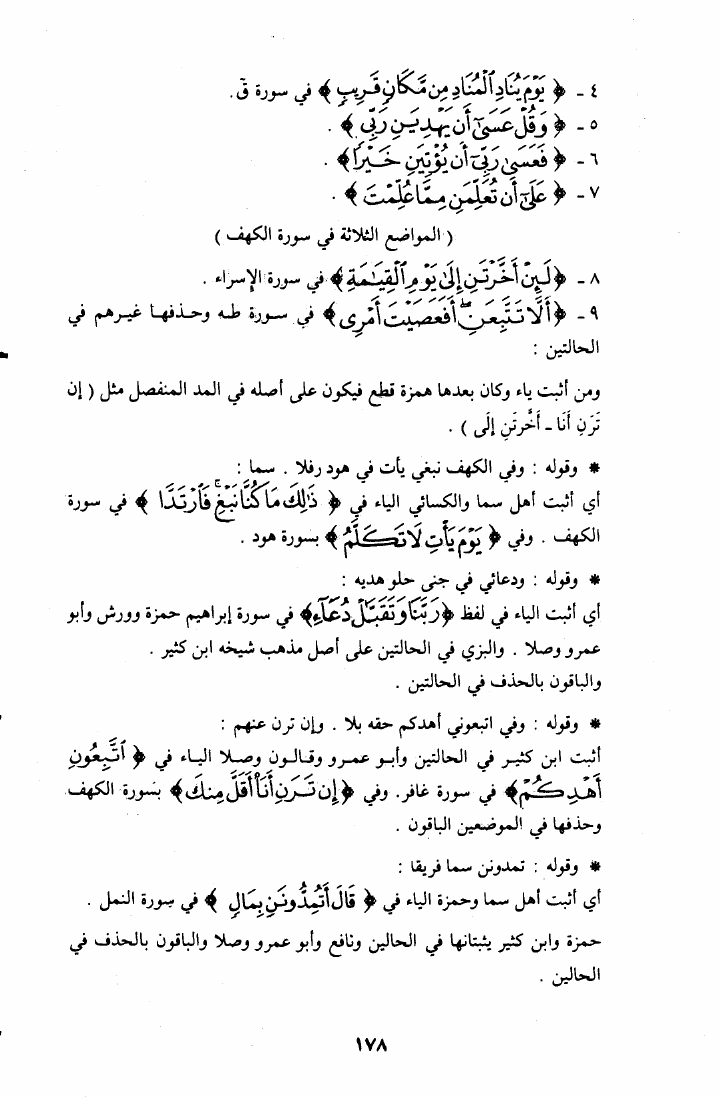 ٤ - ﴿ يَوْمَ يُنَادِ ٱلْمُنَادِ مِن مَّكَانٍ قَرِيبٍ ﴾ في سورة قَ.
٥ - ﴿ وَقُلْ عَسَىٰٓ أَن يَهْدِيَنِ رَبِّي ﴾ .
٦ - ﴿ فَعَسَىٰ رَبِّيٓ أَن يُؤْتِيَنِ خَيْرًا ﴾ .
٧ - ﴿ عَلَىٰٓ أَن تُعَلِّمَنِ مِمَّا عُلِّمْتَ ﴾ .
( المواضع الثلاثة في سورة الكهف )
٨ - ﴿ لَئِنْ أَخَّرْتَنِ إِلَىٰ يَوْمِ ٱلْقِيَٰمَةِ ﴾ في سورة الإسراء .
٩ - ﴿ أَلَّا تَتَّبِعَنِ ۖ أَفَعَصَيْتَ أَمْرِى ﴾ في سورة طه وحذفها غيرهم في
الحالتين :
ومن أثبت ياء وكان بعدها همزة قطع فيكون على أصله في المد المنفصل مثل ( إن
تَرَنِ أَنَا - أَخَّرتَنِ إلَى ) .
* وقوله : وفي الكهف نبغي يأت في هود رفلا . سما :
أي أثبت أهل سما والكسائي الياء في ﴿ ذَٰلِكَ مَا كُنَّا نَبْغِ ۚ فَٱرْتَدَّا ﴾ في سورة
الكهف . وفي ﴿ يَوْمَ يَأْتِ لَا تَكَلَّمُ ﴾ بسورة هود .
* وقوله : ودعائي في جنى حلو هديه :
أي أثبت الياء في لفظ ﴿ رَبَّنَا وَتَقَبَّلْ دُعَآءِ ﴾ في سورة إبراهيم حمزة وورش وأبو
عمرو وصلا . والبزي في الحالتين على أصل مذهب شيخه ابن كثير .
والباقون بالحذف في الحالتين .
* وقوله : وفي اتبعوني أهدكم حقه بلا . وإن ترن عنهم :
أثبت ابن كثير في الحالتين وأبو عمرو وقالون وصلا الياء في ﴿ ٱتَّبِعُونِ
أَهْدِكُمْ ﴾ في سورة غافر. وفي ﴿ إِن تَرَنِ أَنَا۠ أَقَلَّ مِنكَ ﴾ بسورة الكهف
وحذفها في الموضعين الباقون .
* وقوله : تمدونن سما فريقا :
أي أثبت أهل سما وحمزة الياء في ﴿ قَالَ أَتُمِدُّونَنِ بِمَالٍ ﴾ في سورة النمل .
حمزة وابن كثير يثبتانها في الحالين ونافع وأبو عمرو وصلا والباقون بالحذف في
الحالين .
١٧٨